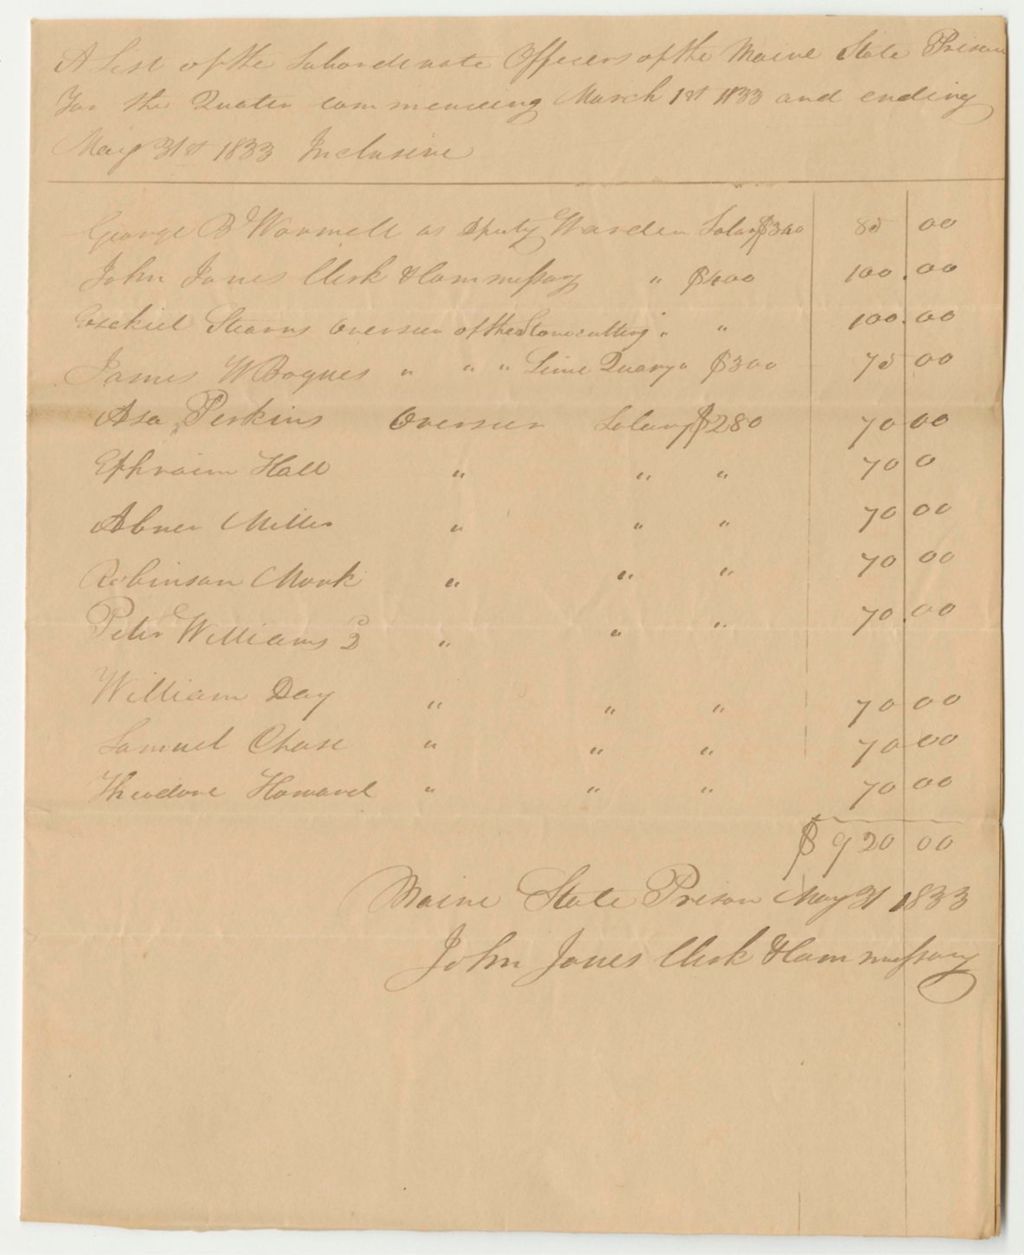 A List of the Subordinate Officers of the Maine State Prison
For the Quater commencing March 1st 1833 and ending
May 31st 1833 Inclusive
George B Wormell as Deputy Warden Salary $340 85 00
John Jones Clerk & Commessary " $400 100.00
Ezekiel Stearns Overseer of the Stonecutting " " 100.00
James W Bogues " " " Lime Quary " $300 75 00
Asa Perkins Overseer Salary $280 70 00
Ephraim Hall " " " 70 0
Abner Miller " " " 70 00
Robinson Monk " " " 70 00
Peter Williams 2D " " " 70.00
William Day " " " 70 00
Samuel Chase " " " 70 00
Theodore Howard " " " 70 00
$920 00
Maine State Prison May 31 1833
John Jones Clerk & Commessary